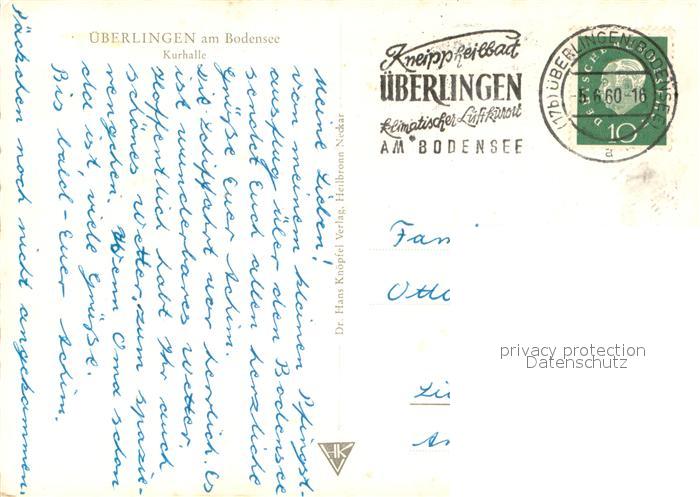 ÜBERLINGEN am Bodensee
Kurhalle
Meine Lieben!
Von meinem kleinen Pfingst-
ausflug über den Bodensee
sendet Euch allen herzliche
Grüße Euer Achim.
Die Schiffahrt war herrlich. Es
ist wunderbares Wetter.
Hoffentlich habt Ihr auch
schönes Wetter, zum spazie-
rengehen. Wenn Oma schon
da ist, viele Grüße.
Bis bald - Euer Achim.
Päckchen noch nicht angekommen.
Dr. Hans Knöpfel Verlag, Heilbronn Neckar
HKV
Kneippheilbad
ÜBERLINGEN
klimatischer Luftkurort
AM BODENSEE
(17b) ÜBERLINGEN (BODENSEE)
-5.6.60-16
a
10
Fam
Otto
privacy protection
Datenschutz